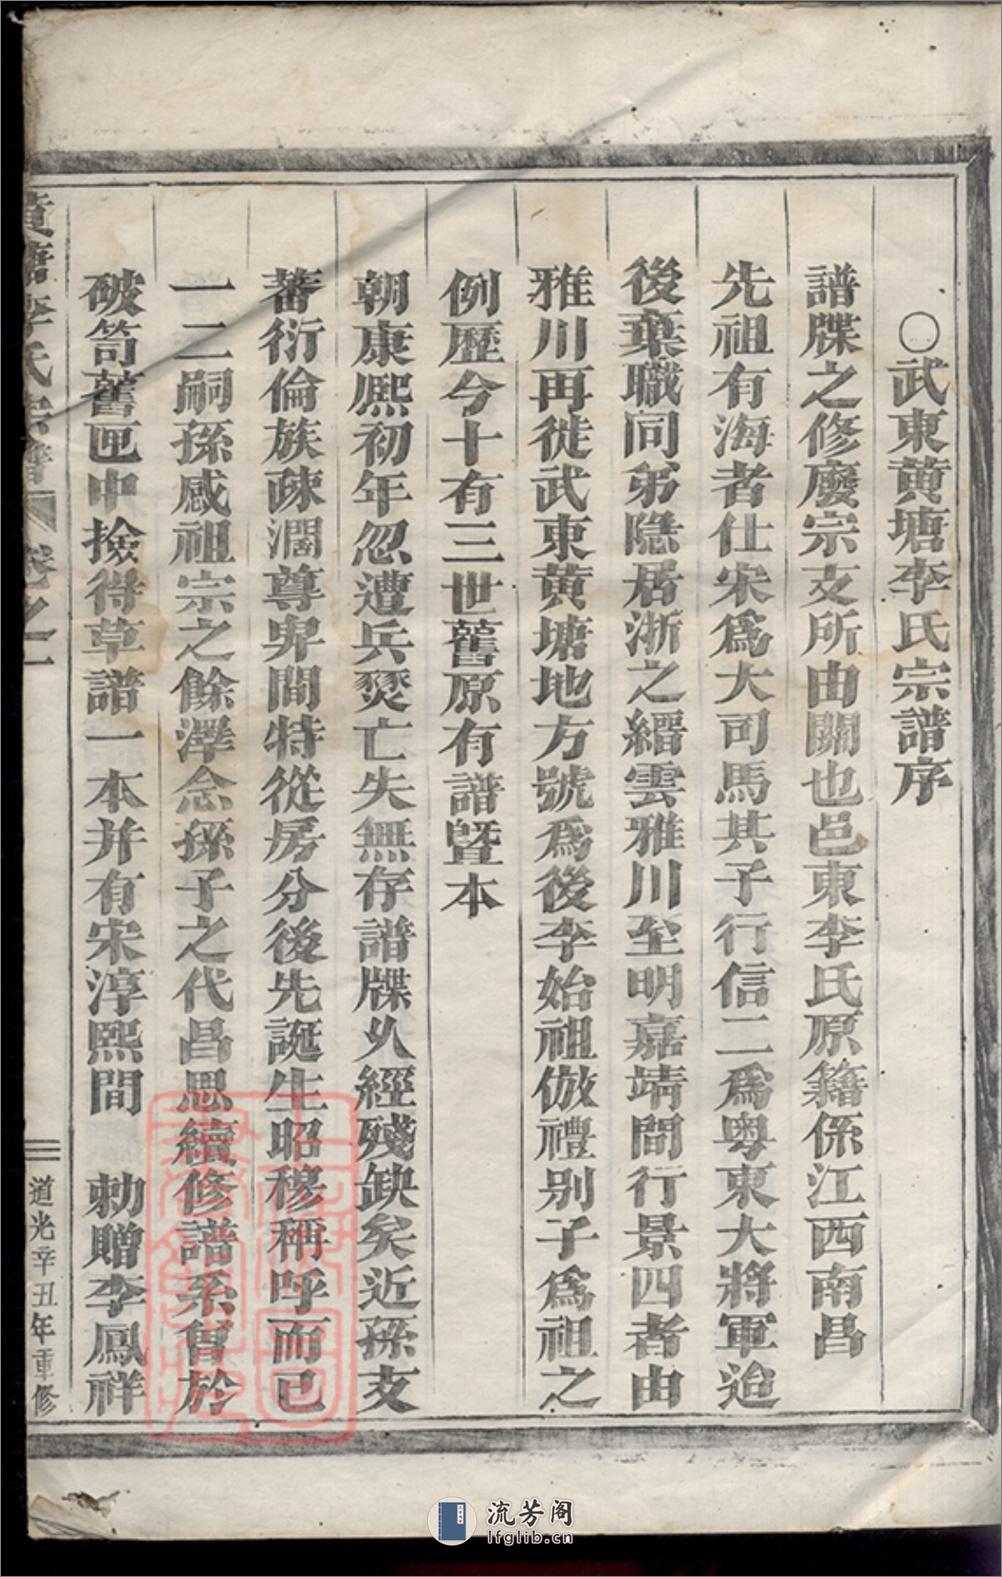 ○武東黄塘李氏宗譜序
譜牒之修廢宗支所由關也邑東李氏原籍係江西南昌
先祖有海者仕宋為大司馬其子行信二為粤東大將軍迨
後棄職同弟隱居浙之縉雲雅川至明嘉靖間行景四者由
雅川再徙武東黄塘地方號為後李始祖倣禮别子為祖之
例歷今十有三世舊原有譜暨本
朝康熙初年忽遭兵燹亡失無存譜牒乆經殘缺矣近孫支
蕃衍倫族疎濶尊卑間特從房分後先誕生昭穆稱呼而已
一二嗣孫感祖宗之餘澤念孫子之代昌思續修譜系曾於
破笥舊匣中撿得草譜一本并有宋淳熙間 勅贈李鳳祥
黄塘李氏宗譜 卷之一 道光辛丑年重修
流芳阁
lfglib.cn